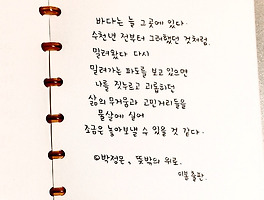 바다는 늘 그곳에 있다.
수천년 전부터 그러했던 것처럼.
밀려왔다 다시
밀려가는 파도를 보고 있으면
나를 짓누르고 괴롭히던
삶의 무거움과 고민거리들을
물살에 실어
조금은 놓아보낼 수 있을 것 같다.
©박정은, 뜻밖의 위로.
이봄 출판.